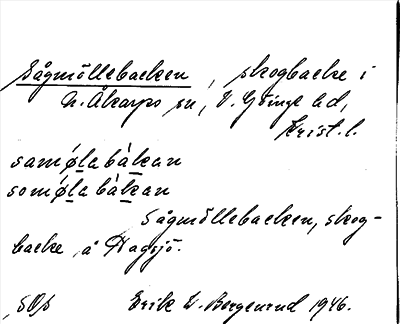 Sågmöllebacken, skogbacke i
N. Åkarps sn, V. Göinge hd,
Krist. l.
samø̱la bȧḵan
somø̱la bȧḵan
Sågmöllebacken, skog-
backe å Hagsjö.
Erik W. Bergenrud 1946.